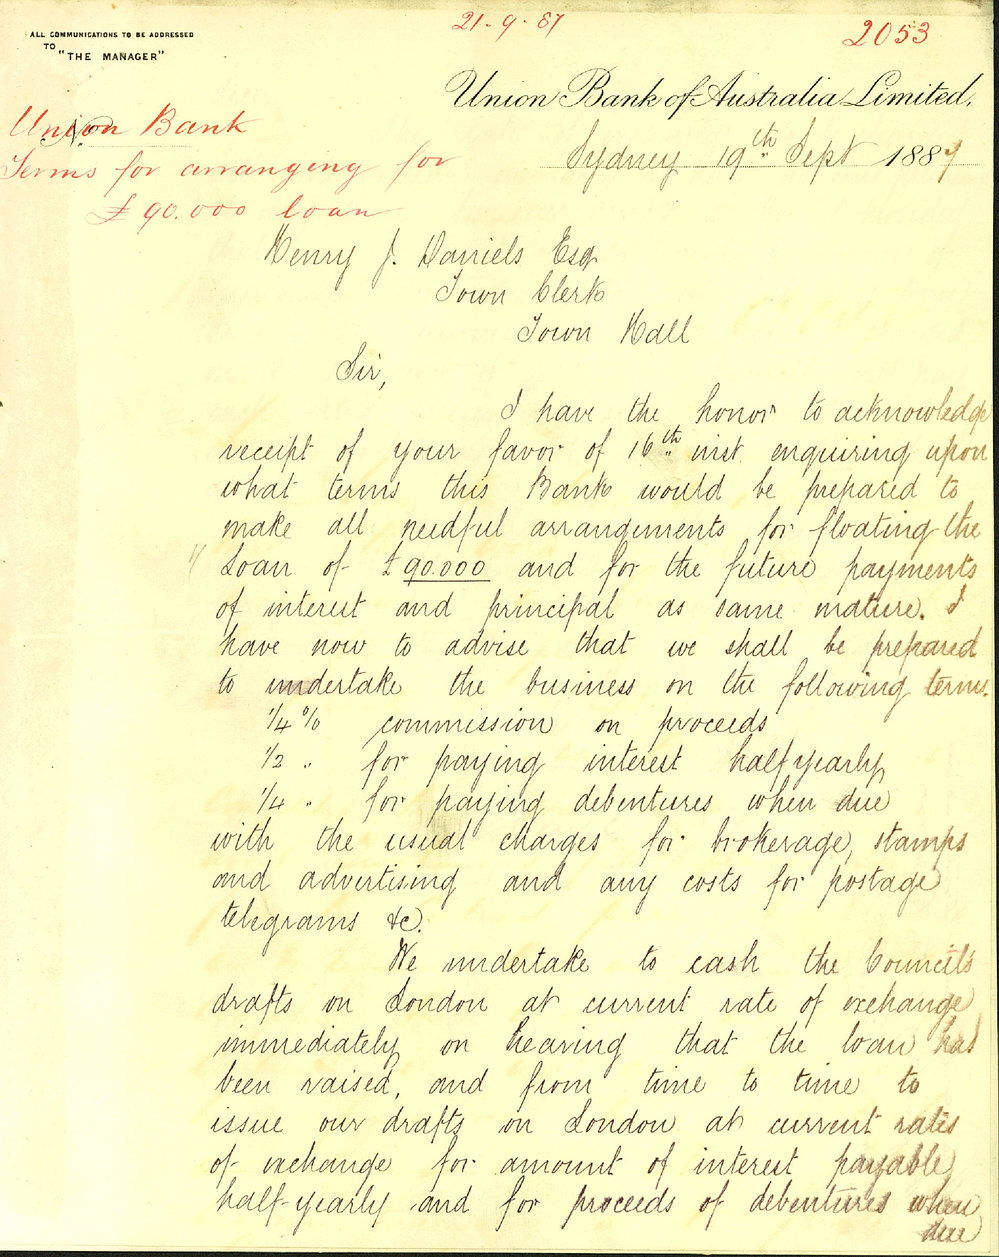 21-9-87
2053
ALL COMMUNICATIONS TO BE ADDRESSED
TO
"THE MANAGER"
Union Bank of Australia Limited.
No.
Union Bank
Terms for arranging for
£90.000 loan
Sydney 19th Sept 1887
Henry J. Daniels Esq
Town Clerk
Town Hall
Sir,
I have the honor to acknowledge
receipt of your favor of 16th inst. enquiring upon
what terms this Bank would be prepared to
make all needful arrangements for floating the
Loan of £90.000 and for the future payments
of interest and principal as same mature. I
have now to advise that we shall be prepared
to undertake the business on the following terms.
1/4 % commission on proceeds
1/2 " for paying interest half yearly
1/4 " for paying debentures when due
with the usual charges for brokerage, stamps
and advertising and any costs for postage
telegrams &c.
We undertake to cash the Council's
drafts on London at current rate of exchange
immediately on hearing that the loan has
been raised, and from time to time to
issue our drafts on London at current rates
of exchange for amount of interest payable
half-yearly and for proceeds of debentures when
due